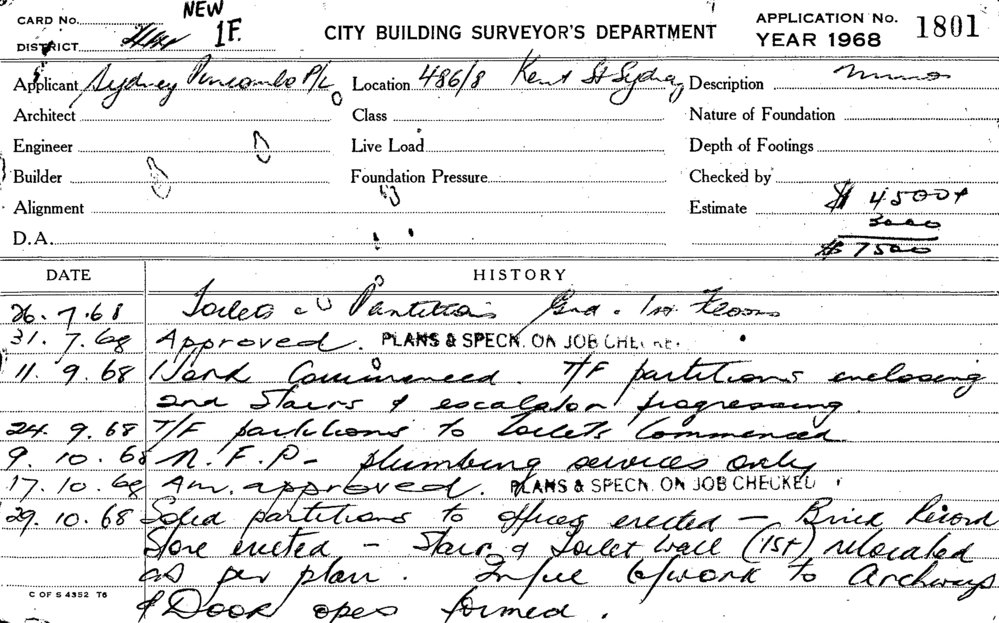 CARD No.
NEW
1F.
CITY BUILDING SURVEYOR'S DEPARTMENT
APPLICATION No. 1801
DISTRICT
YEAR 1968
Applicant Sydney Pincombe P/L Location 486/8 Kent St Sydney Description
Architect Class Nature of Foundation
Engineer Live Load Depth of Footings
Builder Foundation Pressure Checked by
Alignment Estimate $ 4500+
3000
D.A. $ 7500
DATE HISTORY
26.7.68 Toilets Partitions Gnd. 1st Floors
31.7.68 Approved. PLANS & SPECN. ON JOB CHECKED
11.9.68 Work Commenced. T/F partitions enclosing
2nd Stairs & escalator progressing
24.9.68 T/F partitions to toilets Commenced
9.10.68 N.F.P - plumbing services only
17.10.68 Am. approved. PLANS & SPECN. ON JOB CHECKED
29.10.68 Solid partitions to offices erected - Brick Record
Store erected - Stair & Toilet Wall (1st) relocated
as per plan. Infill b/work to Archways
& Door opes formed.
C OF S 4352 T6